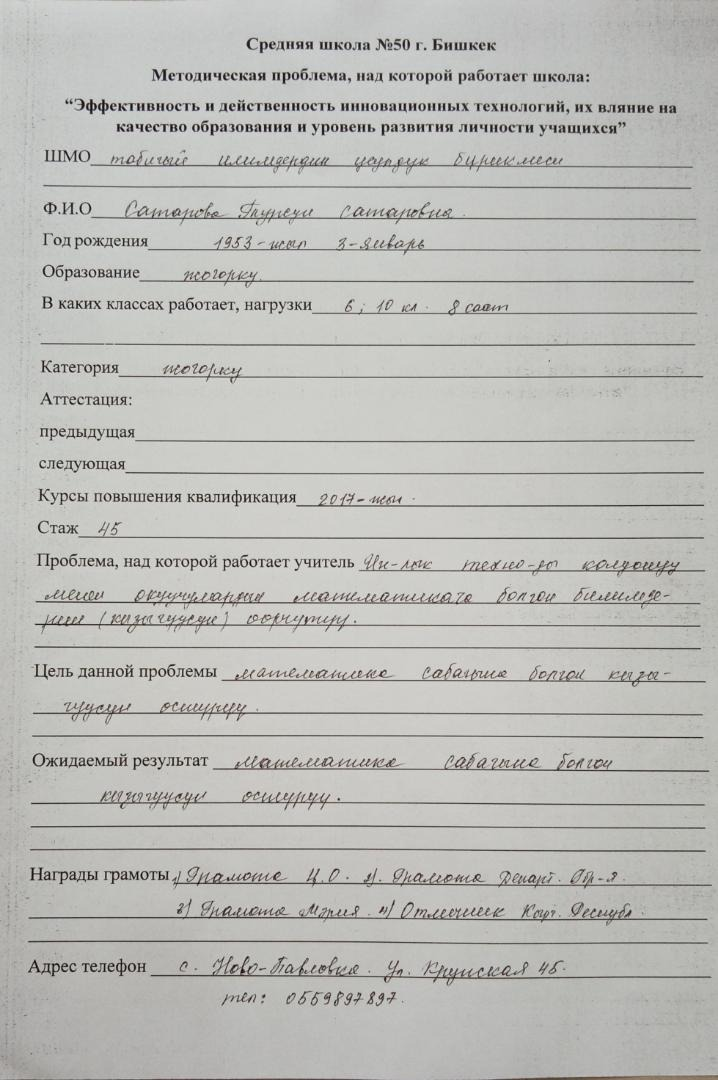 Средняя школа №50 г. Бишкек
Методическая проблема, над которой работает школа:
“Эффективность и действенность инновационных технологий, их вляние на
качество образования и уровень развития личности учащихся”
ШМО табигый илимдердин усулдук бирикмеси
Ф.И.О Сатарова Турсун Сатаровна.
Год рождения 1953-жыл 3-январь
Образование жогорку.
В каких классах работает, нагрузки 6; 10 кл. 8 саат
Категория жогорку
Аттестация:
предыдущая
следующая
Курсы повышения квалификация 2017-жыл.
Стаж 45
Проблема, над которой работает учитель Ин-лык техно-ды колдонуу
менен окуучулардын математикага болгон билимде-
рин (кызыгуусун) арттыруу.
Цель данной проблемы математика сабагына болгон кызы-
гуусун өстүрүү.
Ожидаемый результат математика сабагына болгон
кызыгуусун өстүрүү.
Награды грамоты 1) Грамота Ц.О. 2). Грамота Департ. Обр-я.
3) Грамота Мэрия. 4) Отличник Кырг. Республ.
Адрес телефон с. Ново-Павловка. Ул. Крупская 45.
тел: 0559897897.